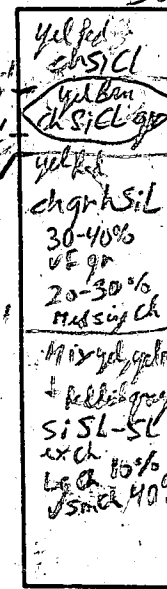 yel red
chSiCL
yel Brn
ch SiCL gr
yel Red
chgrhSiL
30-40%
vF gr
20-30%
Med sing Ch
Mix yel, yel
+ Reddish gray
SiSL-SL
exch
Lg Ch 10%
v smch 40%